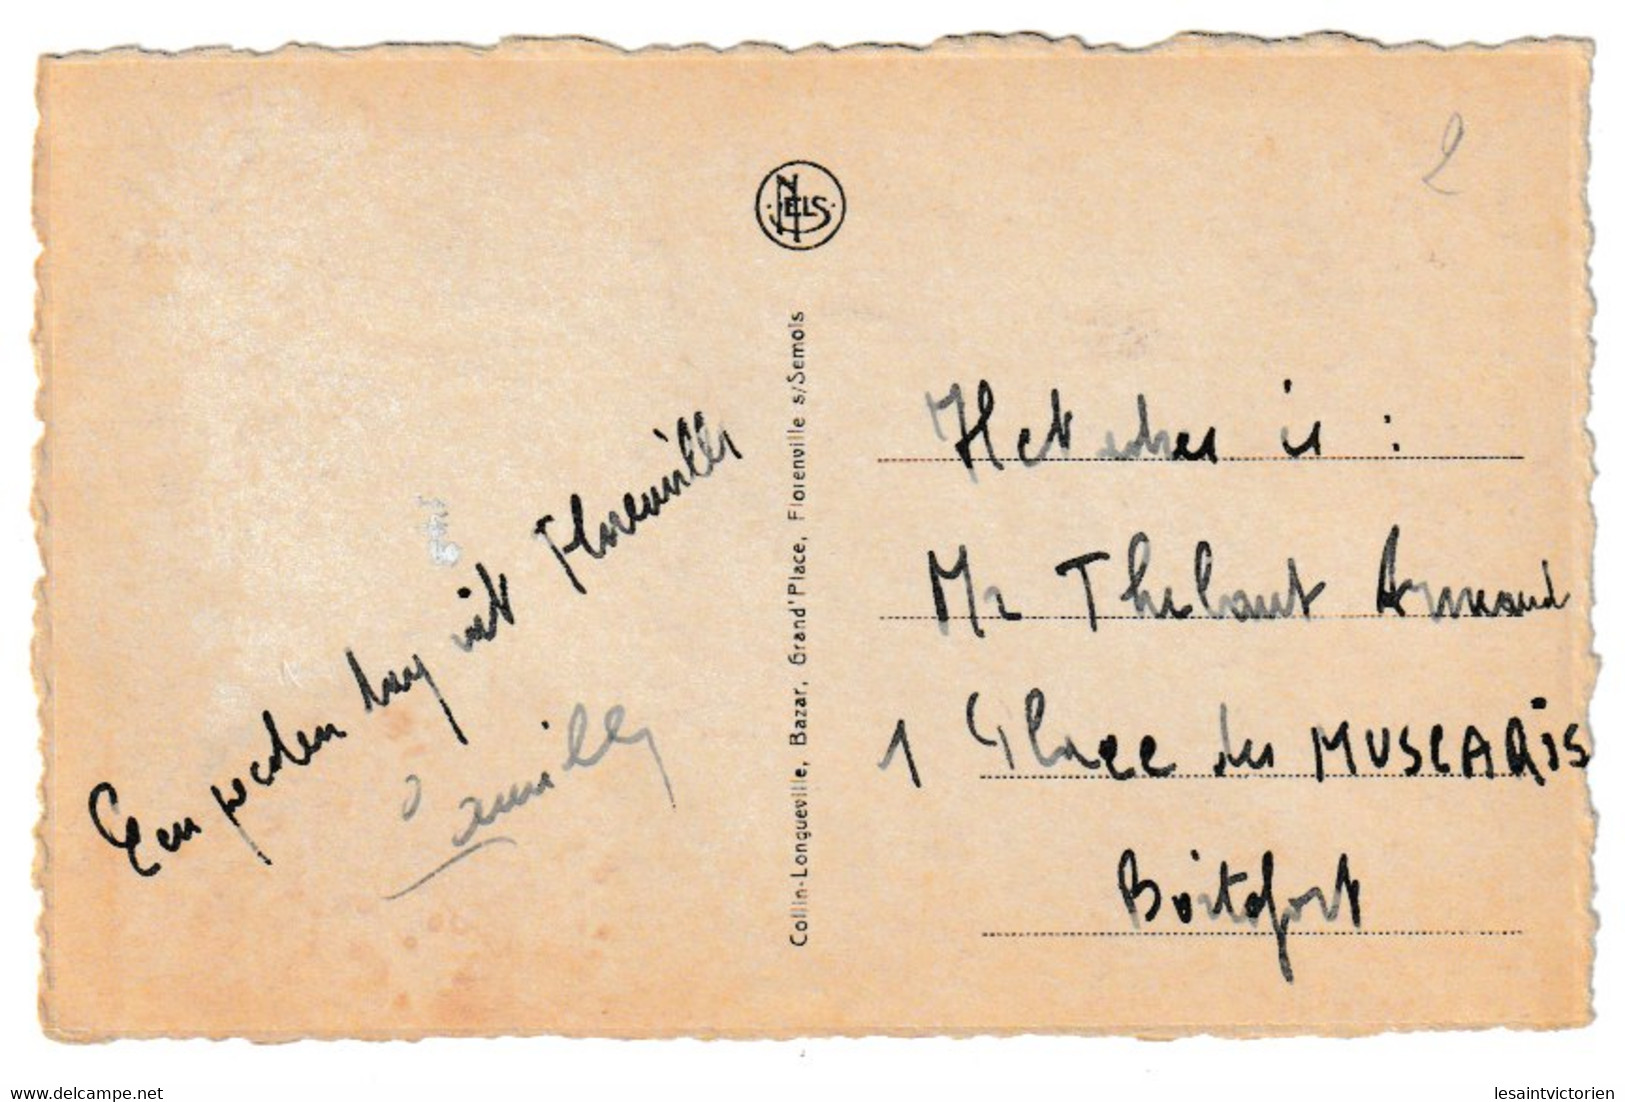 2
NELS
Collin-Longueville, Bazar, Grand'Place, Florenville s/Semois
Een goeden dag uit Florenville
Het adres is :
Mr Thibaut Armand
1 Place des MUSCARIS
Boitsfort
www.delcampe.net
lesaintvictorien